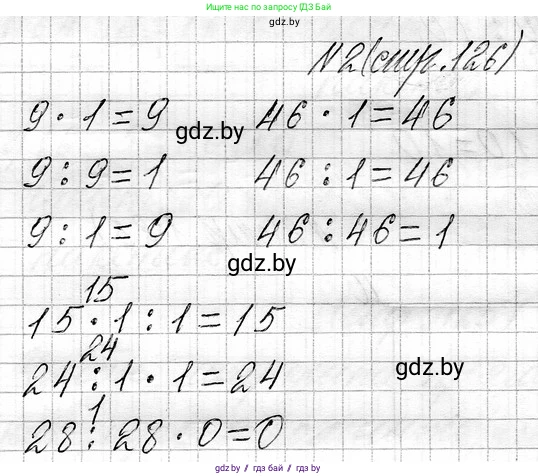 Ищите нас в поиске по запросу ГДЗ.бай
gdz.by
N2(стр.126)
9 · 1 = 9 46 · 1 = 46
gdz.by
9 : 9 = 1 46 : 1 = 46
9 : 1 = 9 46 : 46 = 1
gdz.by
15
15 · 1 : 1 = 15
24
24 : 1 · 1 = 24
gdz.by
1
28 : 28 · 0 = 0
gdz.by / гдз бай / gdz.by / гдз бай / gdz.by